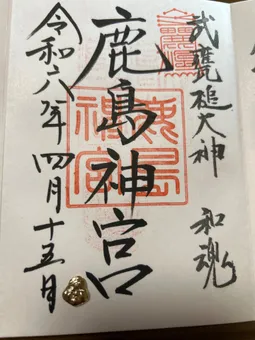 武甕槌大神 和魂
鹿島神宮
令和六年四月十五日
鹿島
神宮